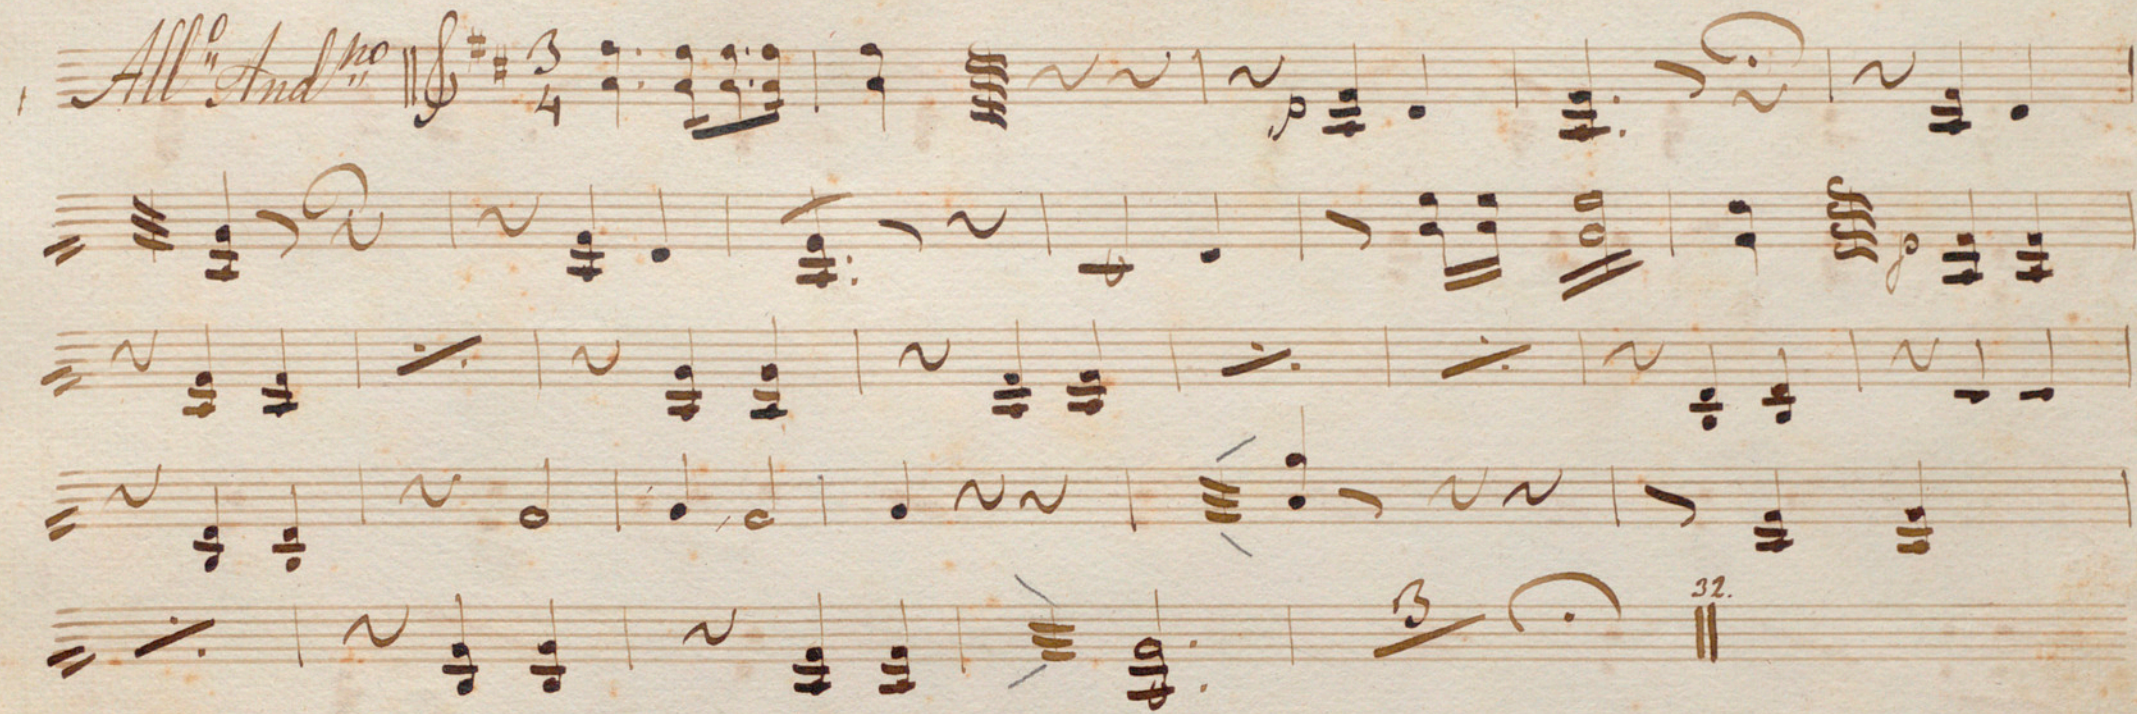 All⁰ And^no 3 4
p
p
3 32.